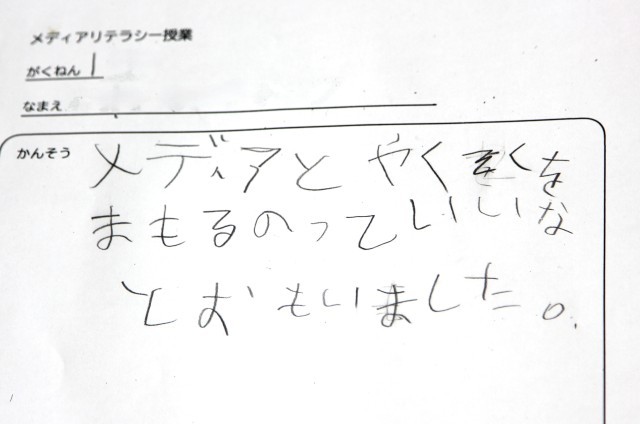 メディアリテラシー授業
がくねん 1
なまえ
かんそう
メディアとやくそくを
まもるのっていいな
とおもいました。